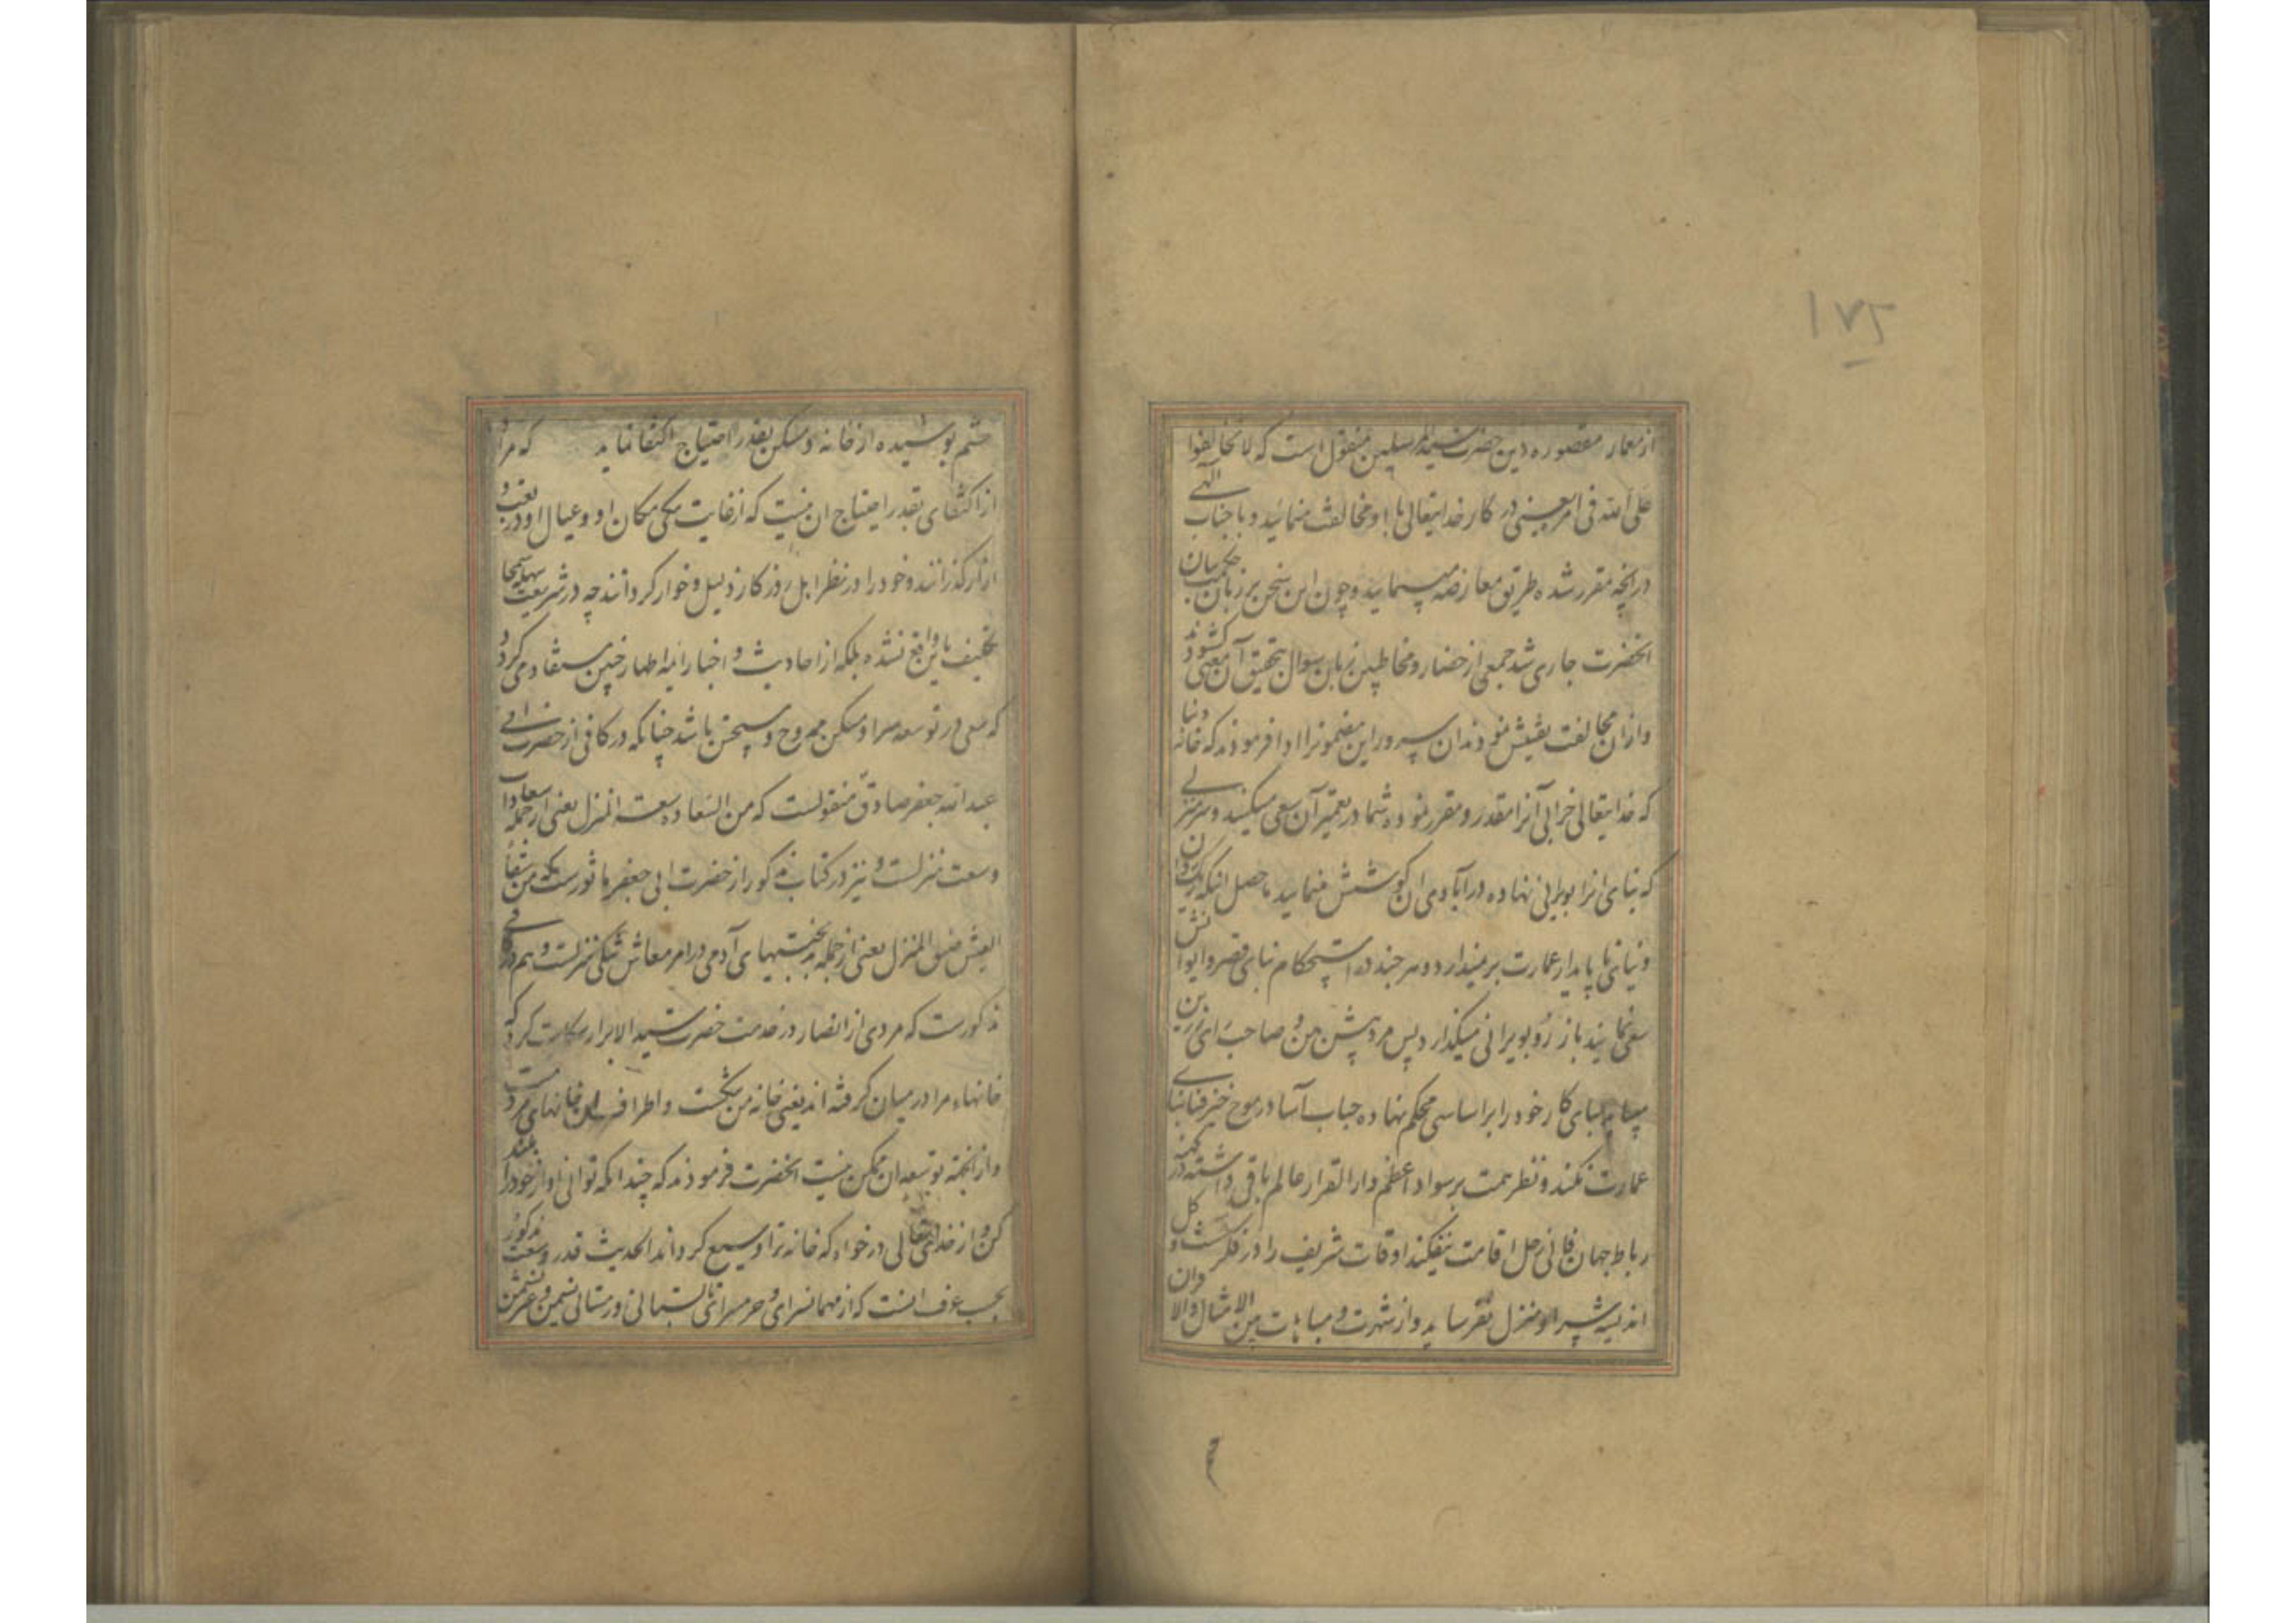 ۱۷۵
از معمار مقصوره دین حضرت سید المرسلین منقول است که لا تخالفوا
علی الله فی امر یعنی در کار خدایتعالی با او مخالفت منمائید و با جناب الهی
در انچه مقرر شده طریق معارضه مپیمایید و چون این سخن بر زبان حکمت بیان
انحضرت جاری شد جمعی از حضار و مخاطبین زبان سوال بتحقیق آن معنی کشودند و
و ازان مخالفت تفتیش نمودند ان سرور این مضمونرا ادا فرمودند که خانه دنیا
که خدایتعالی خرابی آنرا مقدر و مقرر نموده شما در تعمیر آن سعی میکنید و سر منزلی
که بنای انرا بویرانی نهاده در آبادی ان کوشش منمایید حاصل انکه
دنیای نا پایدار عمارت بر نمیدارد و هر چند در استحکام بنای قصر و ایوانش
سعی نمایند باز رو بویرانی میکذارد پس مرد پیش بین و صاحب رای
بنای کار خود را بر اساسی محکم نهاده حباب آسا در موج خیز فنا بنای
عمارت نکند و نظر همت بر سواد اعظم دار القرار عالم باقی داشته در کهنه
رباط جهان فانی رحل اقامت نیفکند اوقات شریف را در فکر کل و
اندیشه سرا و منزل نفرساید و از شهرت و مباهات بین الامثال والاقران
چشم پوشیده از خانه و مسکن بقدر احتیاج اکتفا نماید که مراد
از اکتفای بقدر احتیاج ان نیست که از غایت تنکی مکان او و عیال او در تعب و
ازار کذرانند و خود را در نظر اهل روزکار ذلیل و خوار کردانند چه در شریعت سهله سمحا
تکلیف باین واقع نشده بلکه از احادیث و اخبار ایمه اطهار چنین مستفاد می کردد
که سعی در توسعه سرا و مسکن ممدوح و مستحسن باشد چنانکه در کافی از حضرت ابی
عبد الله جعفر صادق منقولست که من السعاده سعة المنزل یعنی از جمله سعادات
وسعت منزلست و نیز در کتاب مذکور از حضرت ابی جعفر ماثورست که من شقاء
العیش ضیق المنزل یعنی از جمله بدبختیهای آدمی در امر معاش تنکی منزلست و هم در کافی
مذکورست که مردی از انصار در خدمت حضرت سید الابرار شکایت کرد که
خانهاء مرا در میان کرفته اند یعنی خانه من تنکست و اطراف ان خانهای مردمست
و از انجهة توسیع ان ممکن نیست انحضرت فرمودند که چندانکه توانی اواز خود را بلند
کن و از خدایتعالی درخواه که خانه ترا وسیع کرداند الحدیث قدر وسعت مذکور
بحسب عرف انست که از مهمانسرای و حرمسرای تابستانی و زمستانی نشیمن و